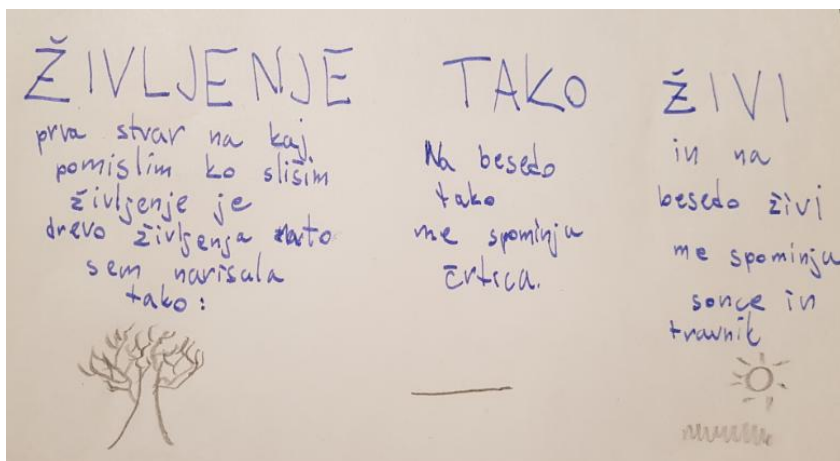 ŽIVLJENJE
prva stvar na kaj
pomislim ko slišim
življenje je
drevo življenja nato
sem narisala
tako:
TAKO
Na besedo
tako
me spominja
črtica.
ŽIVI
in na
besedo živi
me spominja
sonce in
travnik